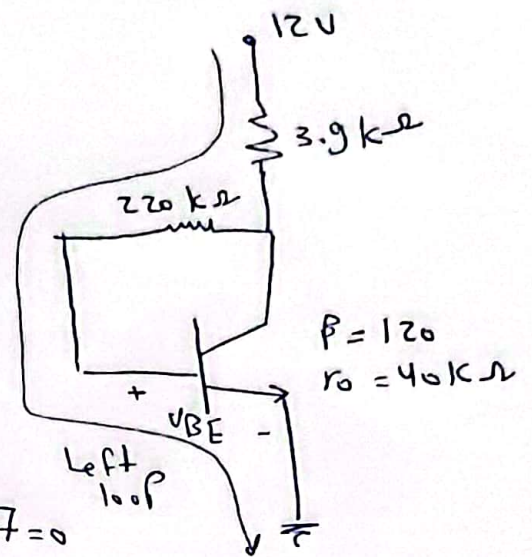 12V
3.9kΩ
220 kΩ
β = 120
r0 = 40kΩ
+
VBE
-
Left
loop
7=0